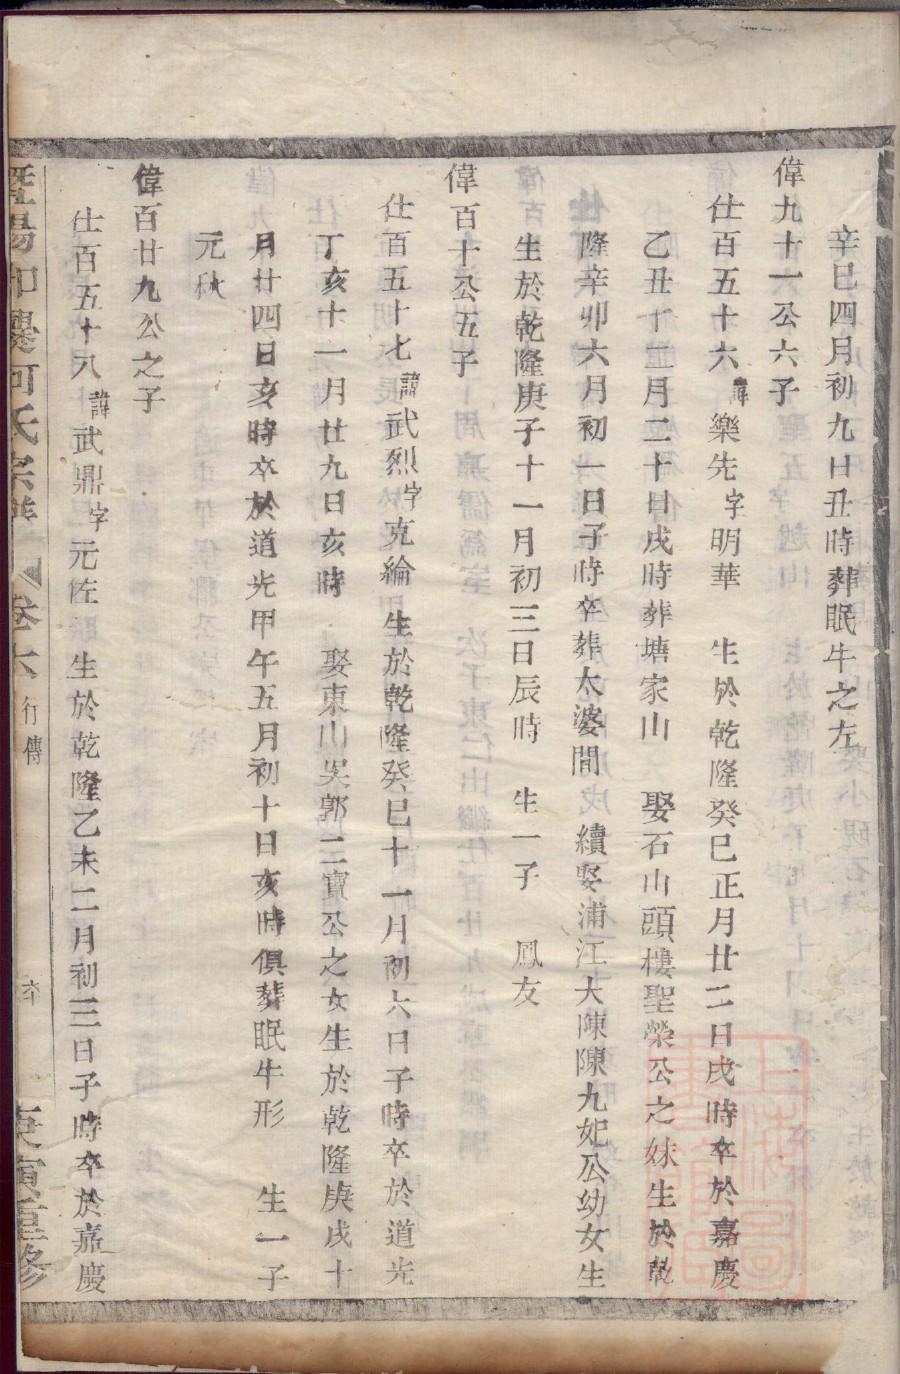 辛巳四月初九日丑時葬眠牛之左
偉九十一公六子
仕百五十六諱樂先字明華 生於乾隆癸巳正月廿二日戌時卒於嘉慶
乙丑十二月二十日戌時葬塘家山 娶石山頭樓聖榮公之妹生於乾
隆辛卯六月初一日子時卒葬太婆間 續娶浦江大陳陳九妃公幼女生
生於乾隆庚子十一月初三日辰時 生一子 鳳友
偉百十公五子
仕百五十七諱武烈字克綸 生於乾隆癸巳十一月初六日子時卒於道光
丁亥十一月廿九日亥時 娶東山吳郭二寶公之女生於乾隆庚戌十
月廿四日亥時卒於道光甲午五月初十日亥時俱葬眠牛形 生一子
元秋
偉百廿九公之子
仕百五十八諱武鼎字元佐 生於乾隆乙未二月初三日子時卒於嘉慶
暨陽 河氏宗譜 卷六 行傳 庚寅重修